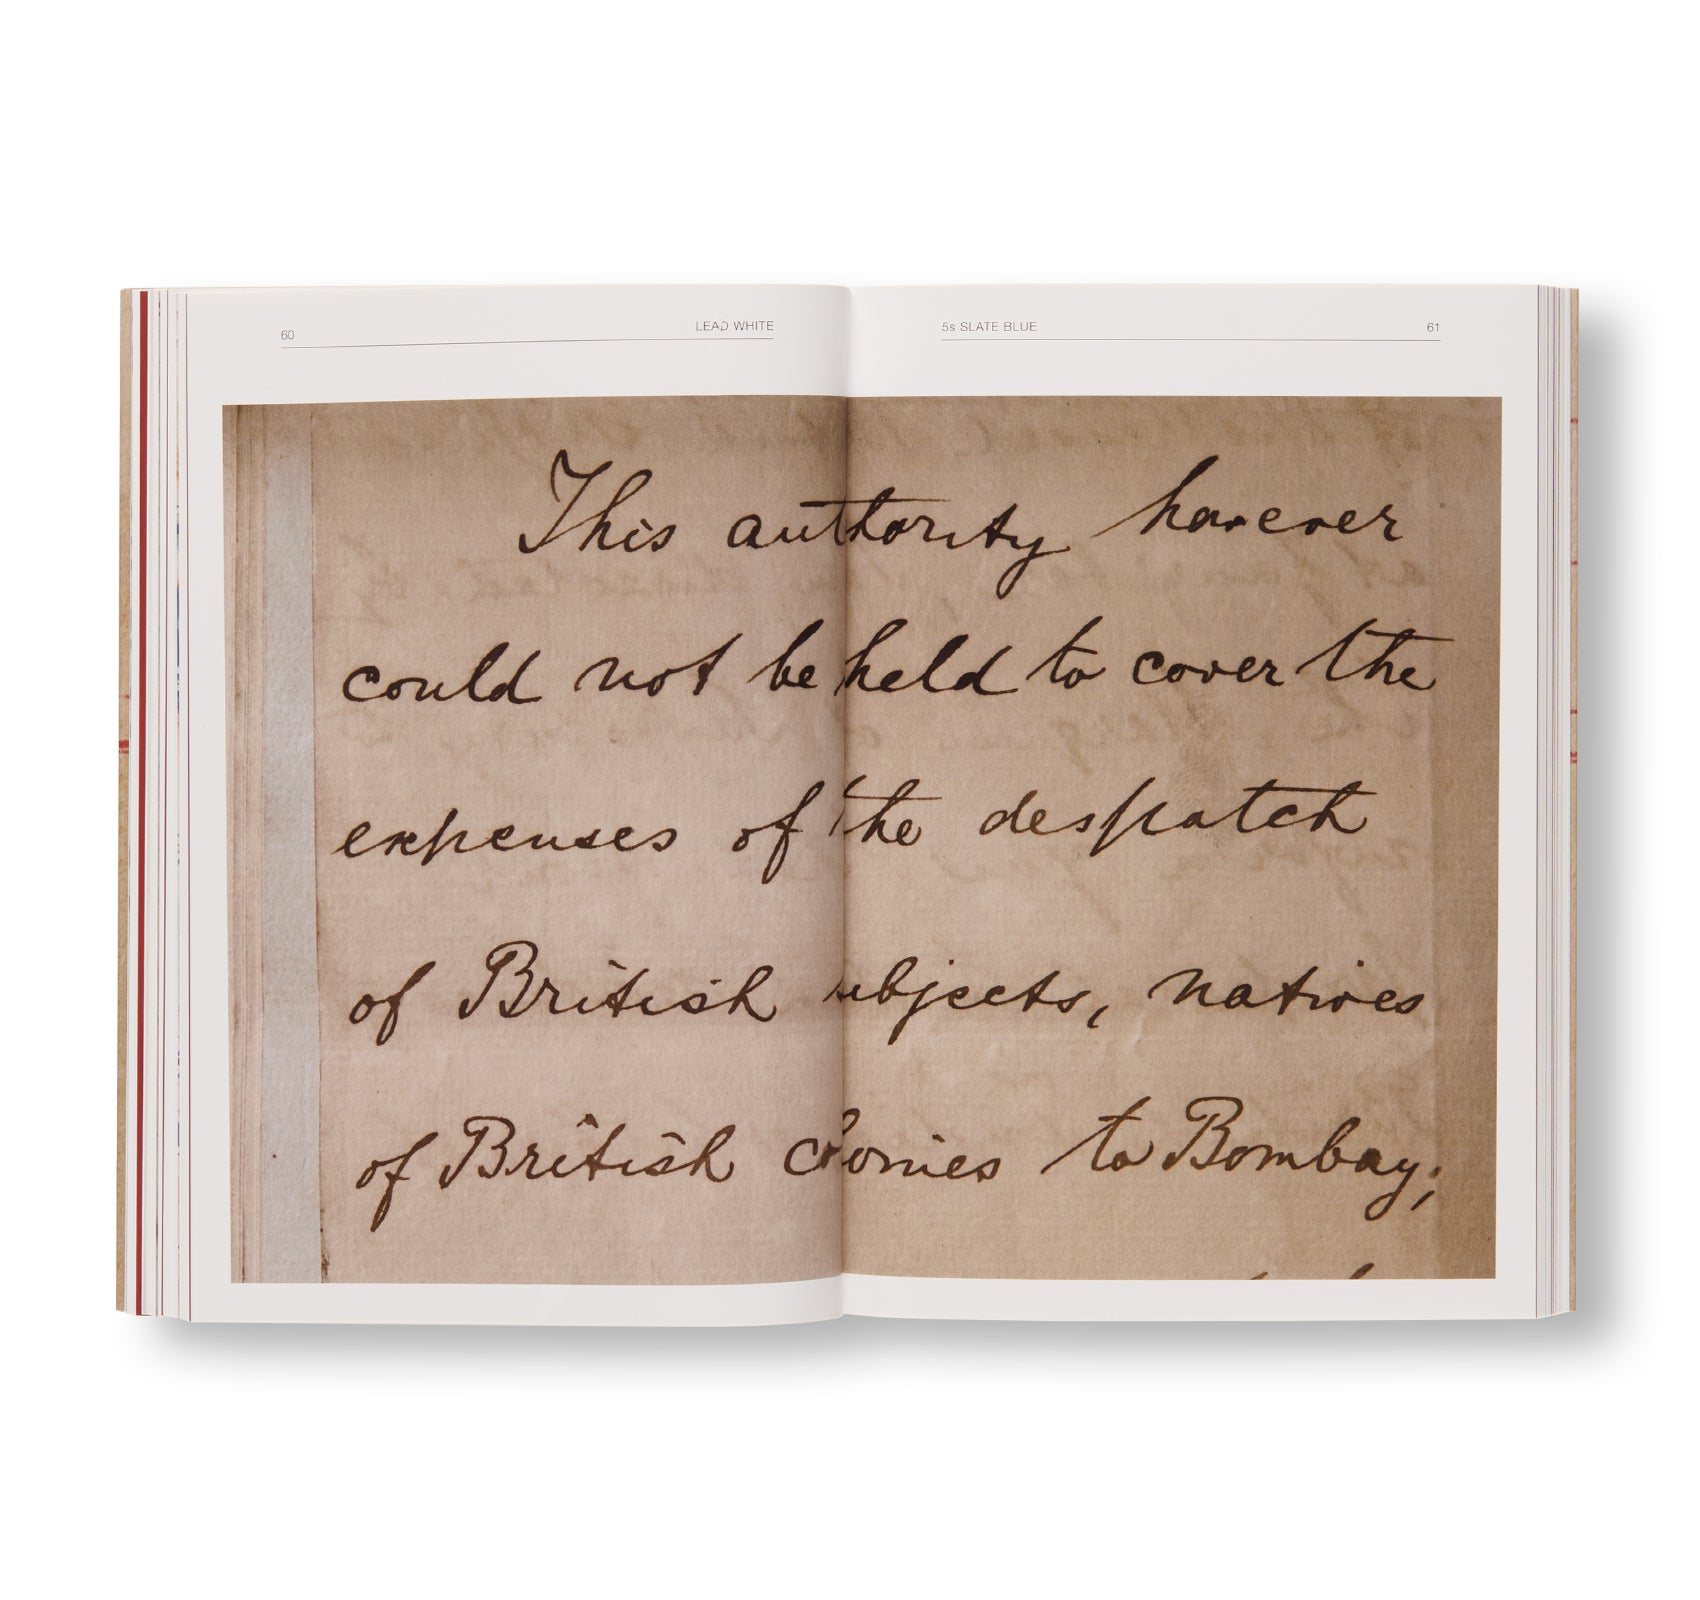 60 LEAD WHITE
5s SLATE BLUE 61
This authority however
could not be held to cover the
expenses of the despatch
of British subjects, natives
of British colonies to Bombay;